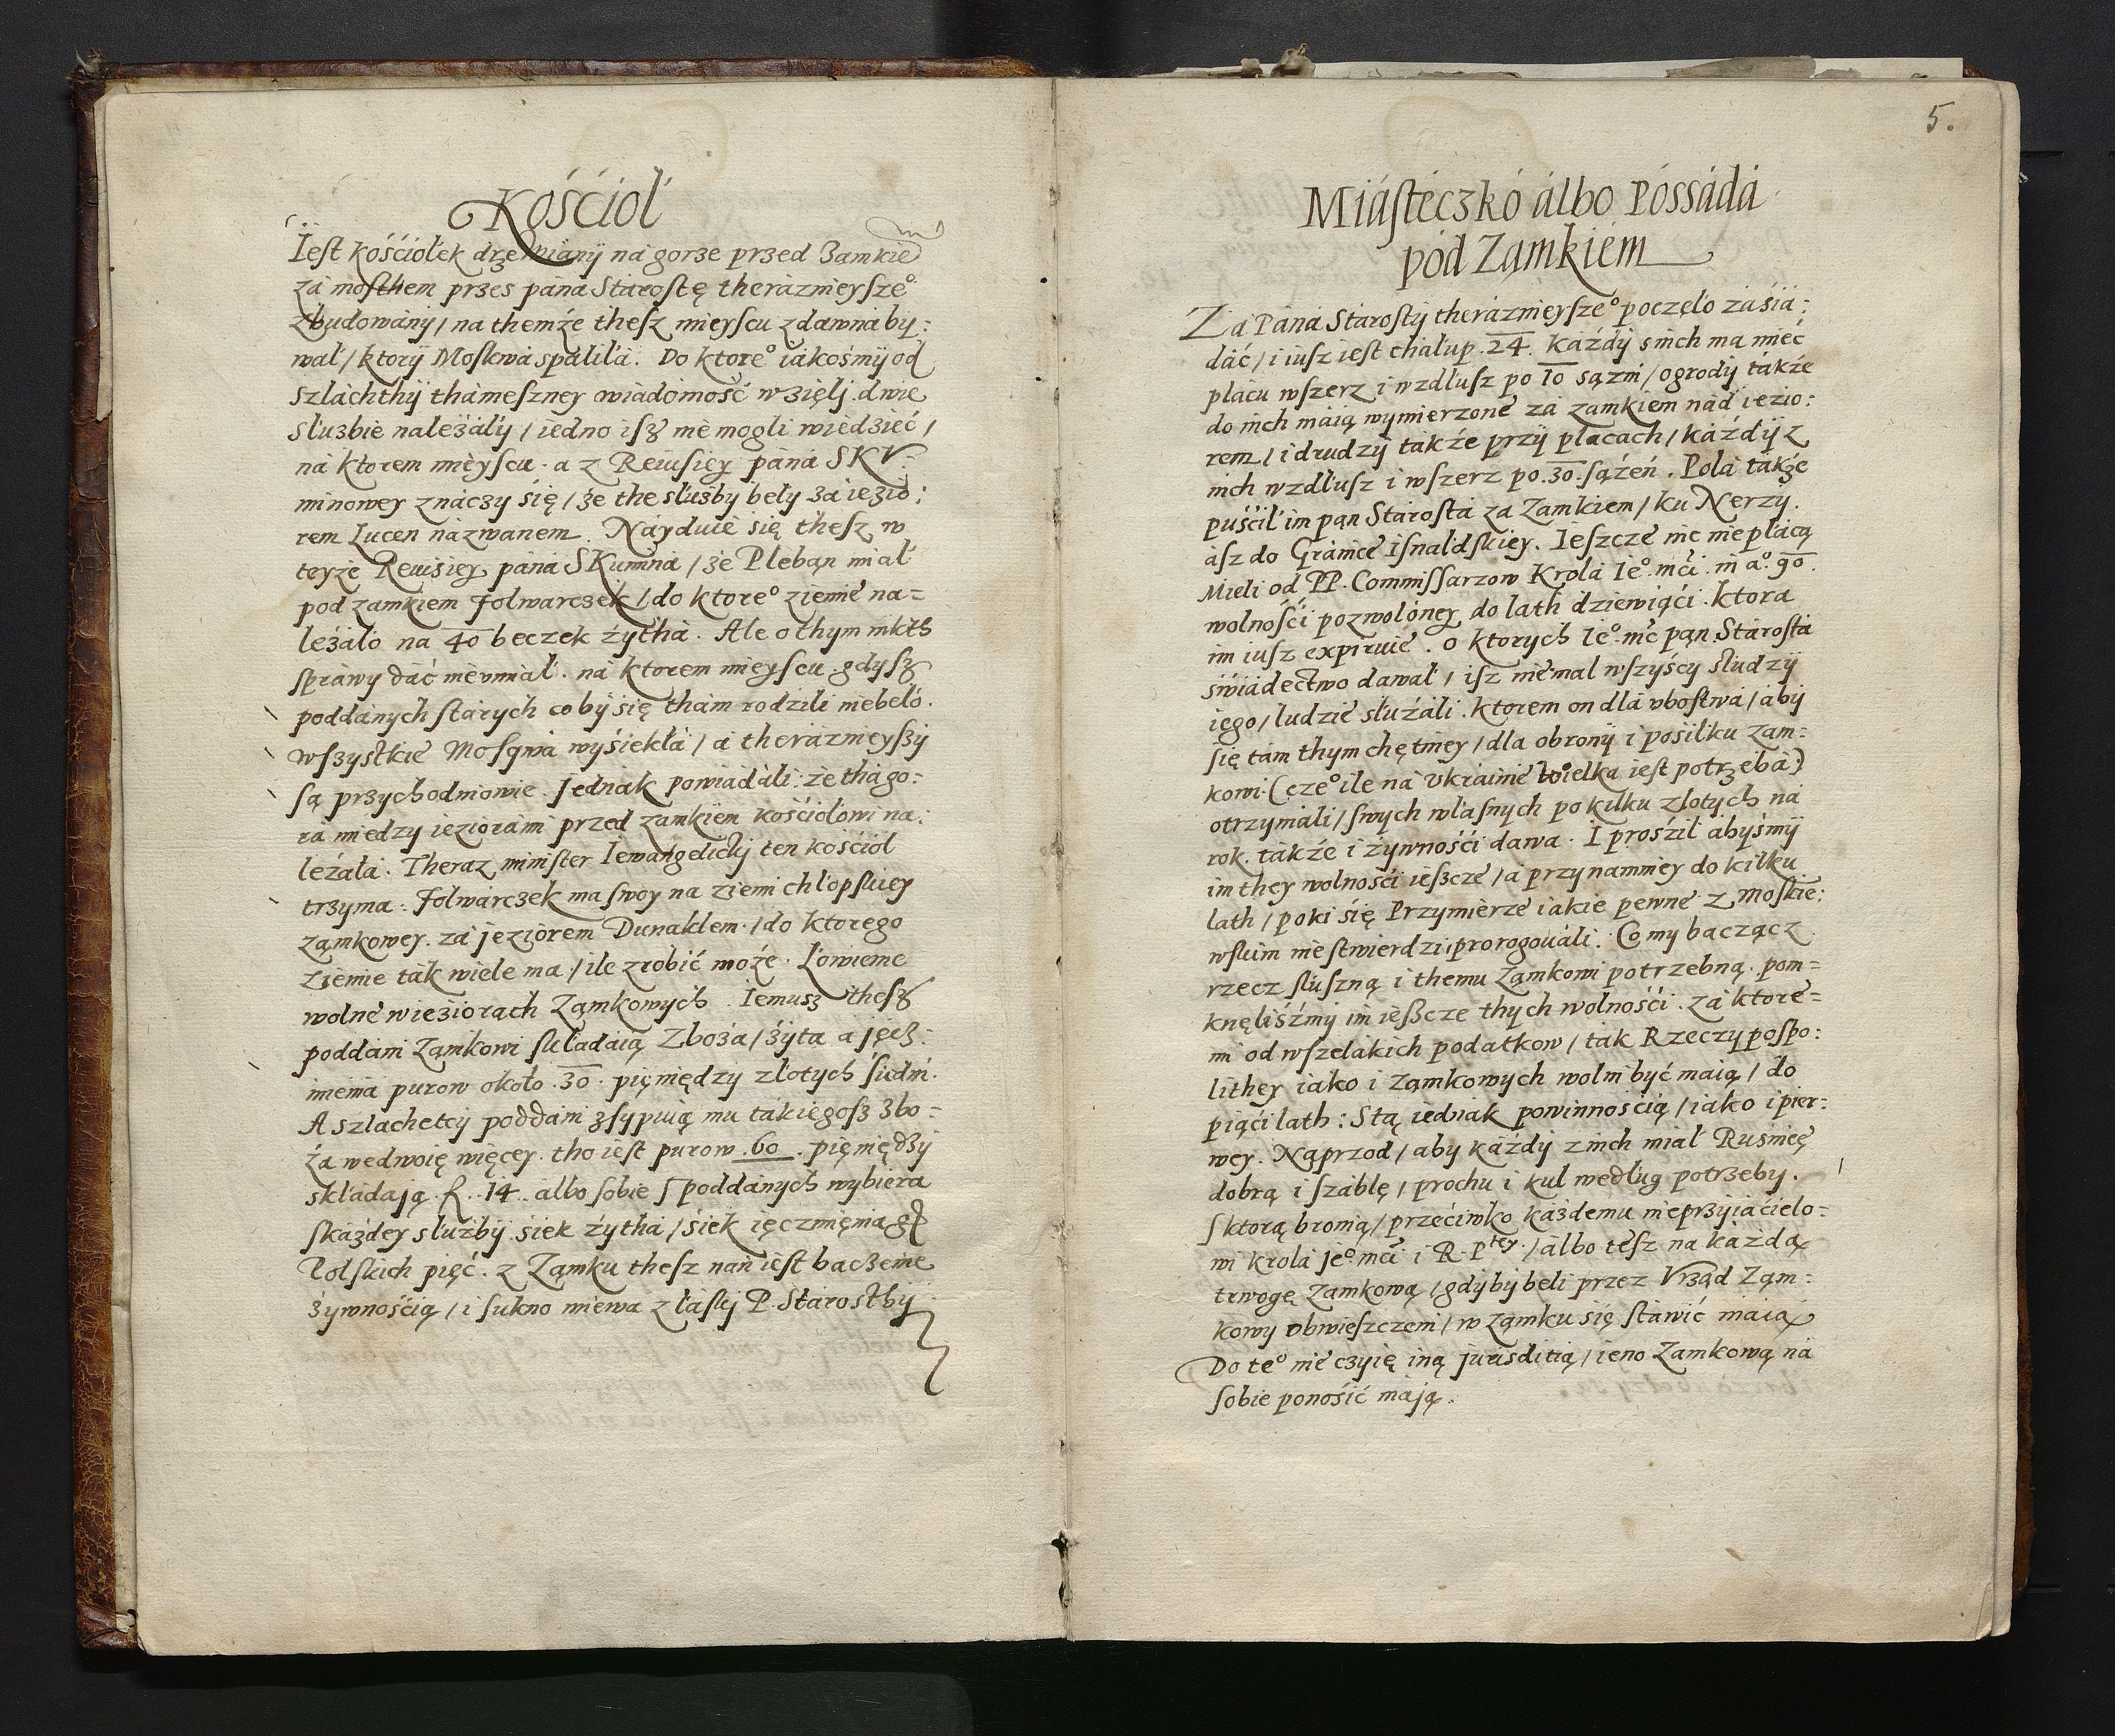 Kośćioł
Iest kośćiołek drzewiány ná gorze przed Zamkiem
zá mosthem przes páná Stárostę therázniejsze°
zbudowány / na themże thesz mieyscu zdawná by:
wał / ktory Moskwá spaliłá. Do ktore° iákosmy od
szláchthy thámeszney wiádomość wzięlj dwie
służbie należáły / iedno isz nie mogli wiedzieć /
ná ktorem mieyscu. a z Reuisiey páná SKV:
minowey znáczy się / że the służby beły zá iezio:
rem Lucen názwanem. Náyduie się thesz w
teyże Reuisiey páná SKuminá / że Pleban miał
pod zamkiem folwarczek / do ktore° ziemie na=
leżáło na 40 beczek żythá. Ale o thym nikth
spráwy dáć nie vmiał. ná ktorem mieyscu gdysz
poddánych stárych co by się thám rodzili niebeło.
wszystkie Moskwá wyśiekłá / á therázniejszy
są przychodniowie. Jednák powiádáli: że thá go=
rá miedzy ieziorámi przed zamkiem kośćiołowi na:
leżáłá. Theraz minister Iewángelicky ten kośćioł
trzyma: Folwárczek ma swoy na ziemi chłopskiey
zámkowey. zá jeziorem Dunaklem / do ktorego
ziemie ták wiele ma / ile zrobić może. Łowienie
wolne w ieziorách Zamkowych. Iemusz thesz
poddáni Zamkowi skłádáią Zbożá / żyta a jęcz:
mieniá purow około .30. pięniędzy złotych śiedm.
A szlachetcy poddáni zsypuią mu tákiegosz zbo=
żá wedwoię więcey. tho iest purow .60. pięniędzy
skłádáją f. 14. álbo sobie s poddánych wybiera
skázdey służby siek żythá / śiek ięczmięniá gr
Polskich pięć. z Zamku thesz nań iest baczenie
żywnośćią / i sukno miewa z łásky P. Stárosthy
5.
Miásteczko álbo Possádá
pod Zamkiem
Zá Páná Stárosty therázniejsze° poczęło záśia:
dáć / i iusz iest chałup .24. káżdy s nich ma mieć
plácu wszerz i wzdłusz po 10 sązni / ogrody tákże
do nich máią wymierzone zá zamkiem nád iezio:
rem / i drudzy tákże przy plácach / káżdy z
nich wzdłusz i wszerz po .30. sążeń. Polá tákże
puśćił im pan Stárostá zá Zamkiem / ku Nerzy.
ász do Gránice isnaldskiey. Ieszcze nic nie płácą
Mieli od PP. Commissarzow Krolá Ie° mći in a° 90.
wolnośći pozwoloney do lath dziewiąći. ktora
im iusz expiruie. o ktorych Ie° mć pan Stárostá
świádectwo dawał / isz niemal wszyscy słudzy
iego / ludzie służáli. ktorem on dlá vbostwá / áby
się tám thym chętniey / dlá obrony i pośiłku zam=
kowi (cze° ile ná Vkráinie wielka iest potrzebá:)
otrzymáli / swych własnych po kilku złotych ná
rok. tákże i żywnośći dawa. I prośźił ábyśmy
im they wolnośći ieszcze / á przynamniey do kilku
lath / poki się Przymierze iákie pewne z Moskie:
wskim nie stwierdzi prorogowáli. Co my bacząc z
rzecz słuszną i themu Zamkowi potrzebną. pom=
knęliśżmy im ieszcze thych wolnośći. zá ktore=
mi od wszelákich podatkow / ták Rzeczypospo:
lithey iáko i Zamkowych wolni być máią / do
piąći lath: Stą iednák powinnośćią / iáko i pier:
wey. Naprzod / aby káżdy z nich miał Rusnicę
dobrą i száblę / prochu i kul według potrzeby.
S ktorą bronią / przećiwko káżdemu nieprzyiaćielo=
wi krolá Je° mći i R. Ptey. / álbo tesz na káżdą
trwogę Zamkową / gdyby beli przez Vrząd Zam=
kowy obwieszczeni / w Zamku się stáwić máią
Do te° nie czyię iną jurisditią / ieno Zamkową ná
sobie ponośić máją.